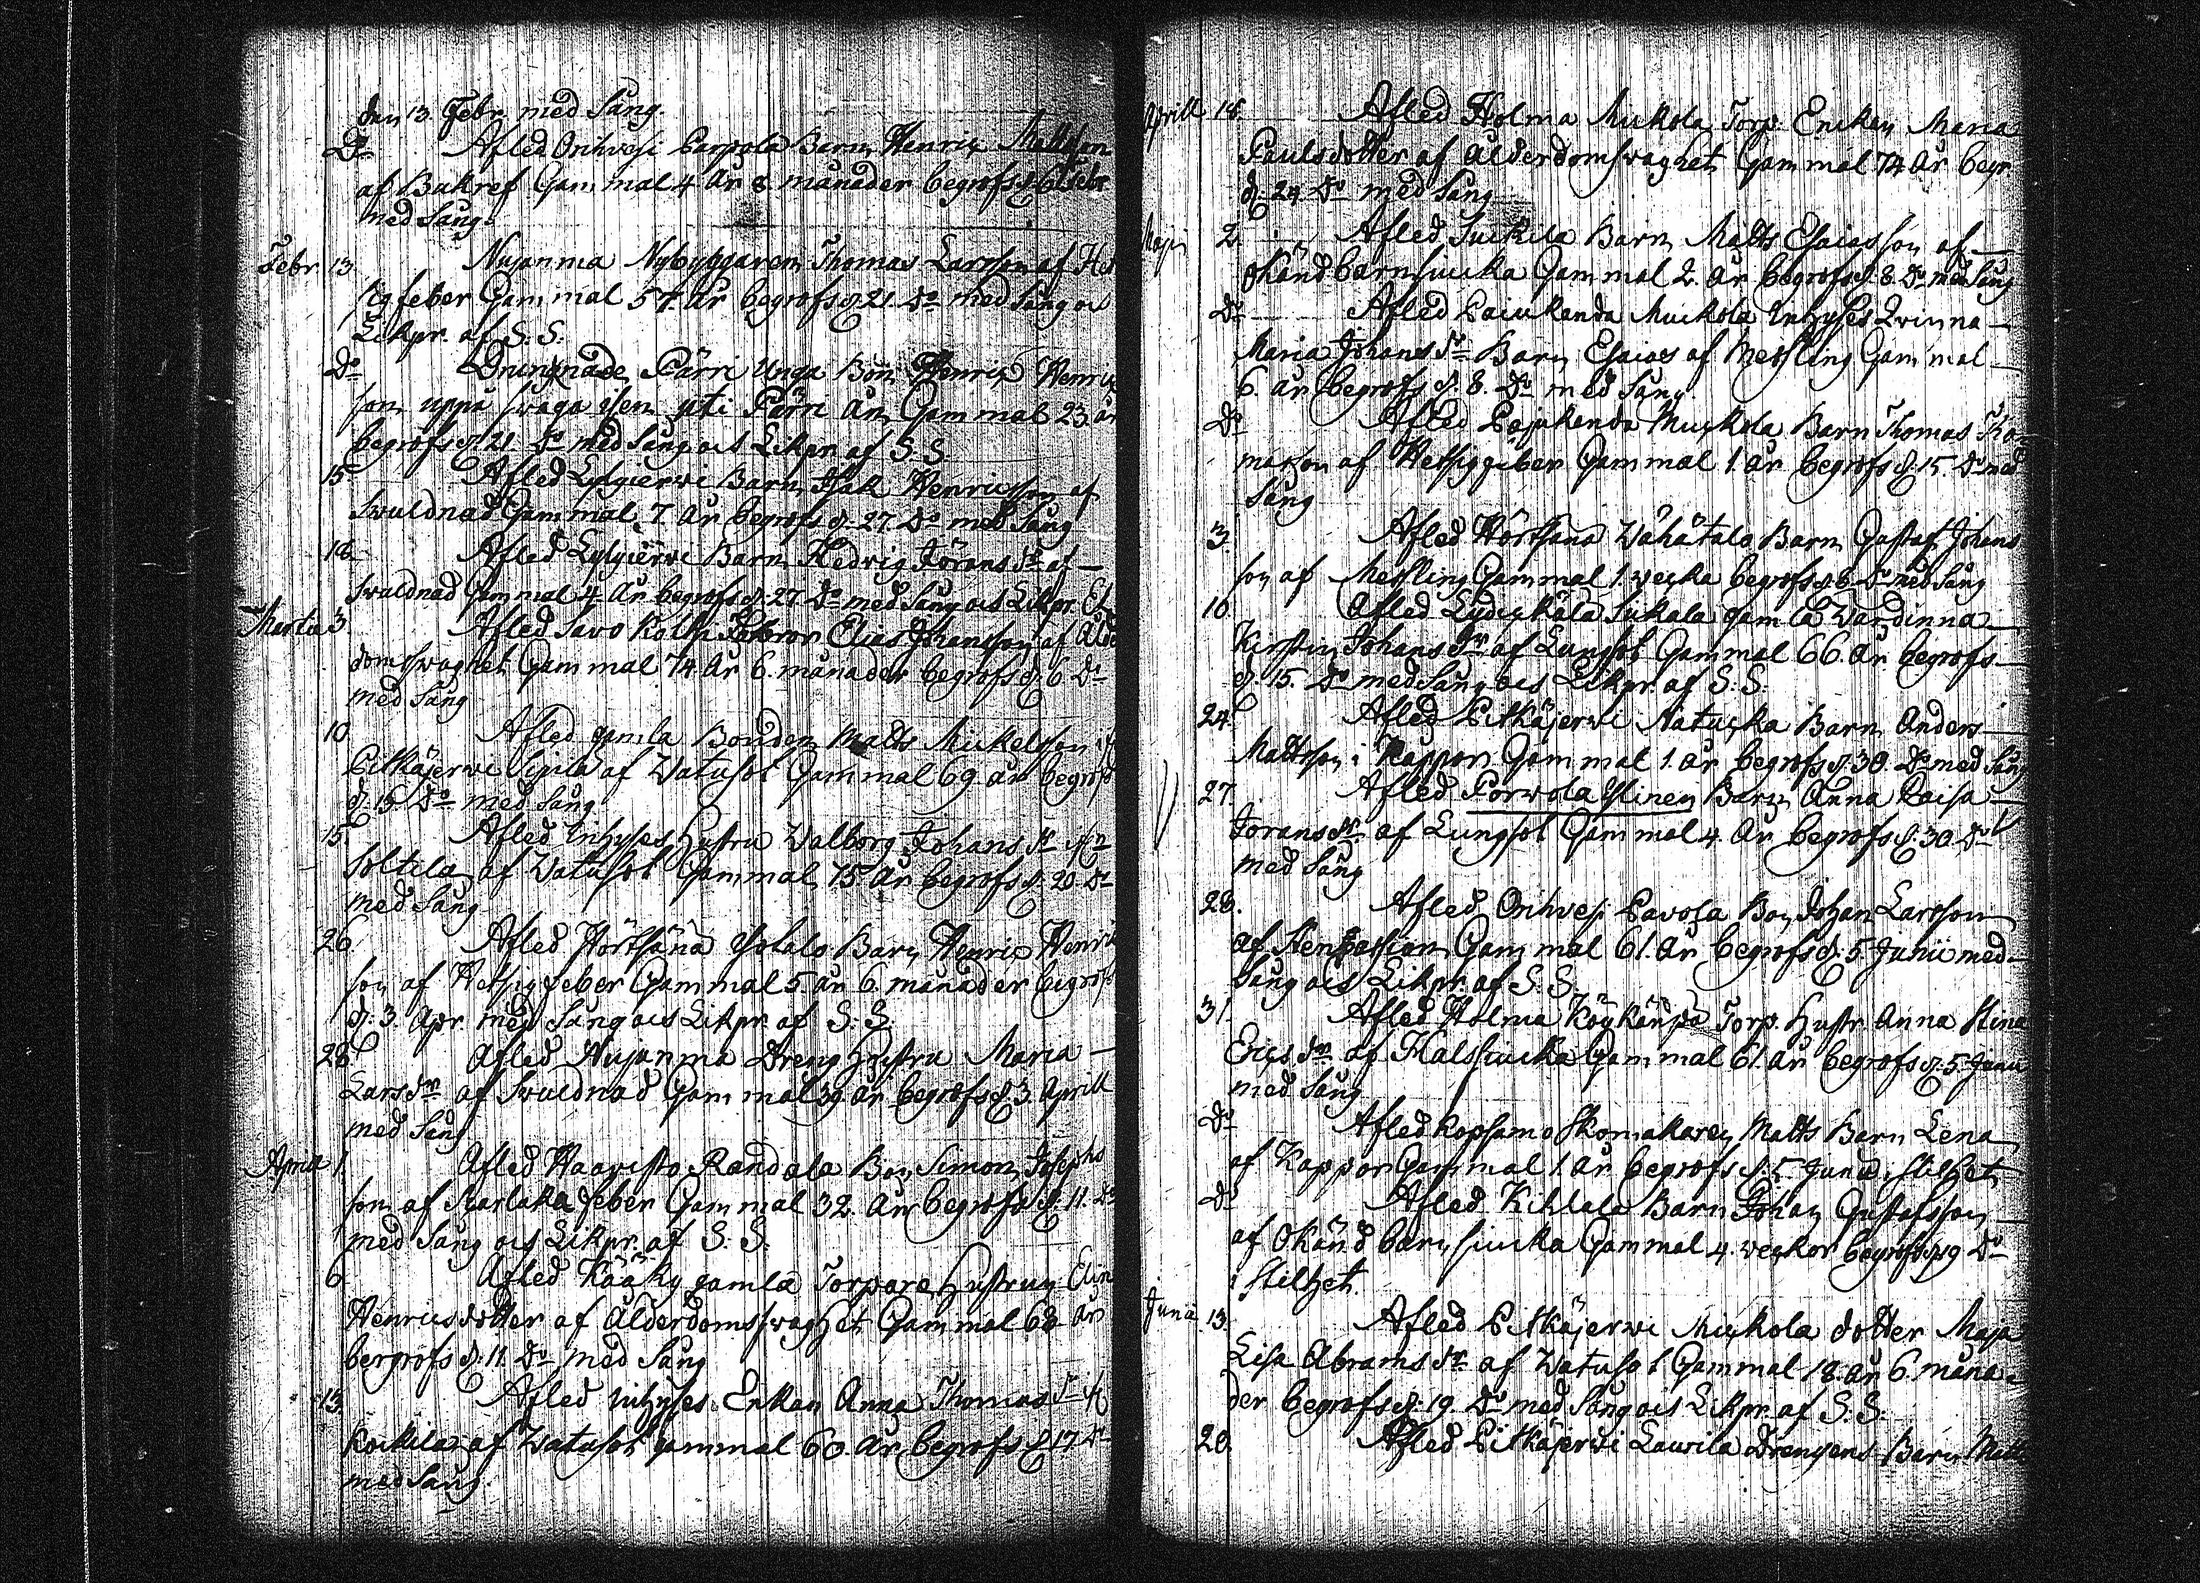 den 13 Febr. med Sång.
Do Afled Orihvesi Parpola Barn Henric Mattsson
af Bukref Gammal 4 År 8 månader begrofs d. 6 Febr.
med Sång.
Febr. 13. Nujanma Nybyggaren Thomas Larsson af Het
sig feber Gammal 57. År begrofs d. 21. Do med Sång oc
Likpr. af S. S.
Do Drungnade Pärri Unga Bon Henric Henrics
son uppå swaga isen uti Pärri Ån Gammal 23 år
begrofs d. 21. Do med Sång ocs Likpr. af S. S.
15 Afled Lylyierwi Barn Isak Henricsson af
Swuldnad Gammal 7. År begrofs d. 27. Do med Sång
18. Afled Lylyierwi Barn Hedvig Jörans dr af
Swuldnad Gammal 4 År begrofs d. 27 Do med Sång ocs Likpr.
Martii 3. Afled Savo Kolki Elias Johansson af Ålder
domsswaghet Gammal 74 År 6. månader begrofs d. 6 Do
med Sång
10. Afled gamla Bonden Matts Mickelsson
Pitkäjerwi Sipilä af Watusot Gammal 69 år begrofs
d. 15 Do med Sång
15. Afled Inhyses Hustru Walborg Johans dr
Soltila af Watusot Gammal 75 År begrofs d. 20 Do
med Sång
26 Afled Hörtsänä Isotalo Barn Henric Henrics
son af Hetsig feber Gammal 5 år 6. månader begrofs
d. 3. Apr. med Sång ocs Likpr. af S. S.
28 Afled Nujanma Dreng Hustru Maria
Lars dr af Swuldnad Gammal 39 år begrofs d. 3. Aprill
med Sång
Aprill 1. Afled Haavisto Randala Bon Simon Josephs
son af Skarlaka feber Gammal 32. År begrofs d. 11. Do
med Sång ocs Likpr. af S. S.
6 Afled Kääky gamla Torpare Hustrun Elin
Henricsdotter af Ålderdomsswaghet Gammal 68 år
bergrofs d. 11. Do med Sång
13. Afled Inhyses Enkan Anna Thomas dr
Kockila af Watusot gammal 60. År begrofs d. 17. Do
med Sång.
Aprill 18. Afled Holma Mickola Torp. Enckan Maria
Paulsdotter af Ålderdomswaghet Gammal 74 År begr.
d. 24. Do med Sång
Maji 2. Afled Suckila Barn Matts Esaiasson af
okänd barnsiucka Gammal 2. År begrofs d. 8. Do med Sång
Do Afled Paiukanda Muckola Inhyses Qvinna
Maria Johans dr Barn Esaias af Messling Gammal
6. år begrofs d. 8. Do med Sång.
Do Afled Pajukanda Muckola Barn Thomas Tho-
masson af Hetsig feber Gammal 1. år begrofs d. 15. Do med
Sång
3. Afled Hörtsänä Wähätalo Barn Gustaf Johans
son af Messling Gammal 1. wecka begrofs d. 8. Do med Sång
10. Afled Lydickälä Sukala gamla Wärdinna
Kirstin Johans dr af Lungsot Gammal 66. År begrofs
d. 15. Do med Sång ocs Likpr. af S. S.
24. Afled Pitkäjerwi Natucka Barn Anders
Mattsson i Kappor Gammal 1. år begrofs d. 30. Do med Sång
27. Afled Porwola Ylinen Barn Anna Caisa
Jorans dr af Lungsot Gammal 4. År begrofs d. 30 Do
med Sång
28. Afled Orihvesi Pavola Bon Johan Larsson
af Stenpassion Gammal 61. År begrofs d. 5 Junii med
Sång ocs Likpr. af S. S.
31. Afled Holma Köykänpä Torp. Hustr. Anna Stina
Erics dr af Halssiucka Gammal 61. år begrofs d. 5 Junii
med Sång
Do Afled Kopsamo Skomakaren Matts Barn Lena
af Kappor Gammal 1. År begrofs d. 5 Junii i stilhet
Do Afled Kihlala Barn Johan Gustafsson
af Okänd barnsiucka Gammal 4. weckor begrofs d. 9 Do
i stilhet.
Junii 13. Afled Pitkäjerwi Mickola dotter Maja
Lisa Abrams dr af Watusot Gammal 18. år 6. måna-
der begrofs d. 19. Do med Sång ocs Likpr. af S. S.
20. Afled Pitkäjerwi Laurila Drengens Barn Matts